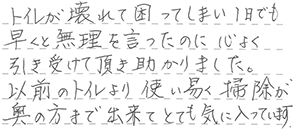 トイレが壊れて困ってしまい1日でも
早くと無理を言ったのに心よく
引き受けて頂き助かりました。
以前のトイレより使い易く掃除が
奥の方まで出来てとても気に入っています。